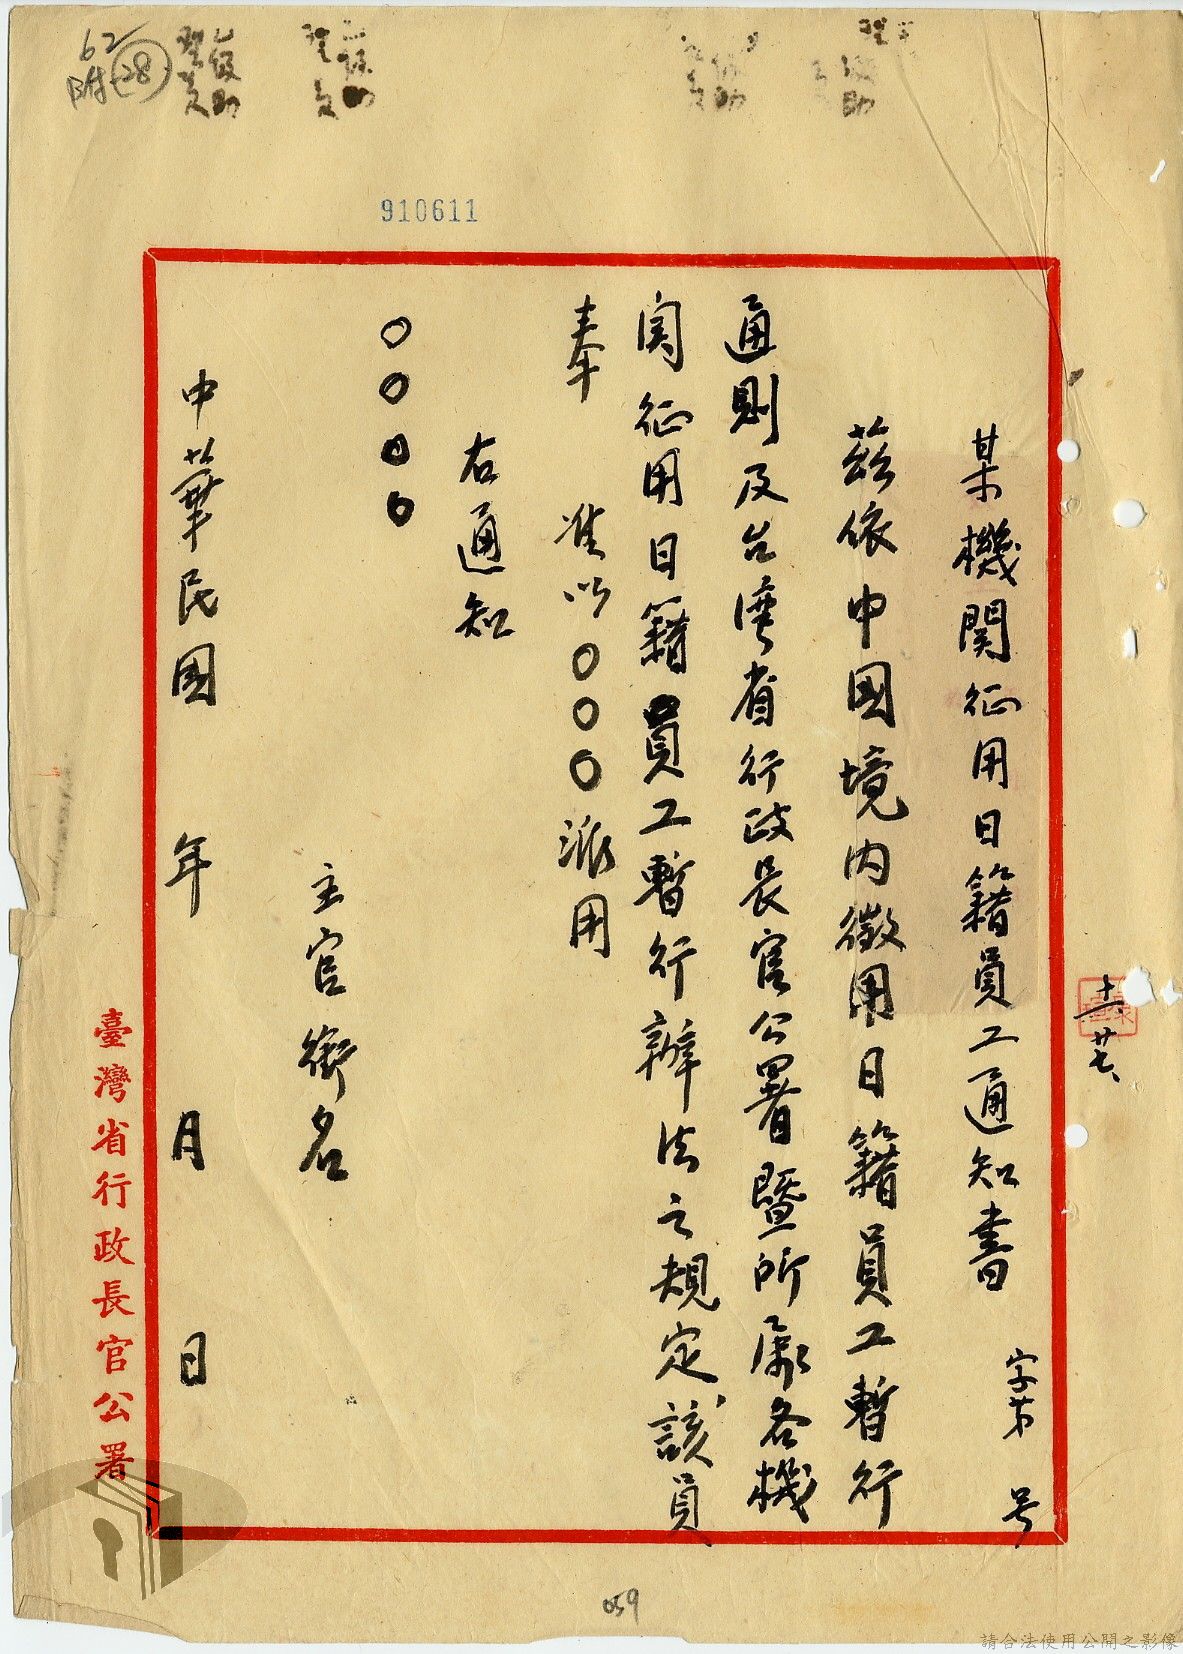 某機関征用日籍員工通知書 字第 号
茲依中国境内徵用日籍員工暫行
通則及台湾省行政長官公署暨所屬各機
関征用日籍員工暫行辦法之規定該員
奉 准以〇〇〇派用
右通知
〇〇〇〇
主官銜名
中華民國 年 月 日
臺灣省行政長官公署
十一、廿七、
910611
62
附(28)
059
請合法使用公開之影像